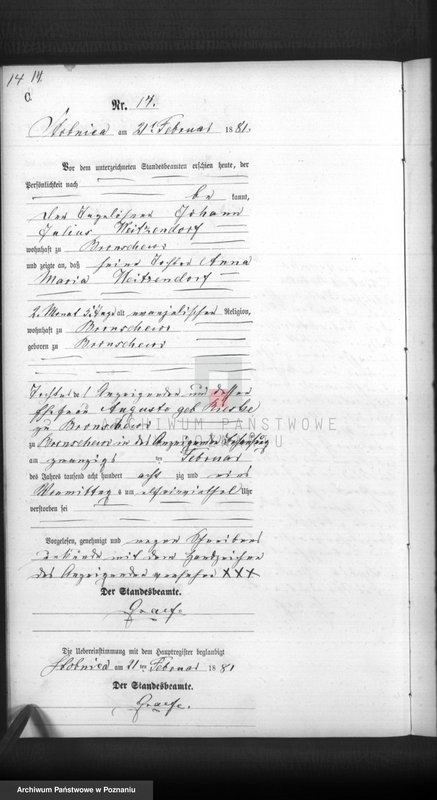 14 14.
C.
Nr. 14.
Slobnica am 21ten Februar 1881.
Vor dem unterzeichneten Standesbeamten erschien heute, der
Persönlichkeit nach
be kannt,
der Tagelöhner Johann
Julius Weitzendorf
wohnhaft zu
und zeigte an, daß seine Tochter Anna
Maria Weitzendorf
2 Monat 3 Tage alt evangelischer Religion,
wohnhaft zu
geboren zu
Tochter des Anzeigenden und dessen
Ehefrau Auguste geb
zu
zu in des Anzeigenden Behausung
am zwanzigs ten Februar
des Jahres tausend acht hundert acht zig und eins
Vormittag s um Uhr
verstorben sei
Vorgelesen, genehmigt und wegen Schreibens
unkunde mit dem Handzeichen
des Anzeigenden versehen XXX
Der Standesbeamte.
Graefe.
Die Uebereinstimmung mit dem Hauptregister beglaubigt
Slobnica am 21 ten Februar 1881
Der Standesbeamte.
Graefe.
ARCHIWUM PAŃSTWOWE
W POZNANIU
Archiwum Państwowe w Poznaniu